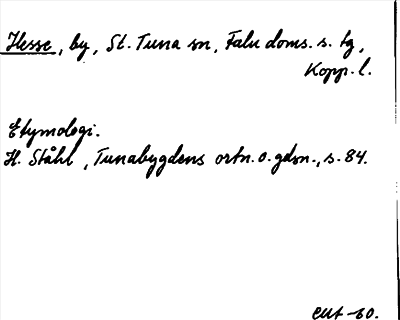 Hesse, by, St. Tuna sn, Falu doms. s. tg,
Kopp. l.
Etymologi.
H. Ståhl, Tunabygdens ortn. o. gdsn., s. 84.
-60.